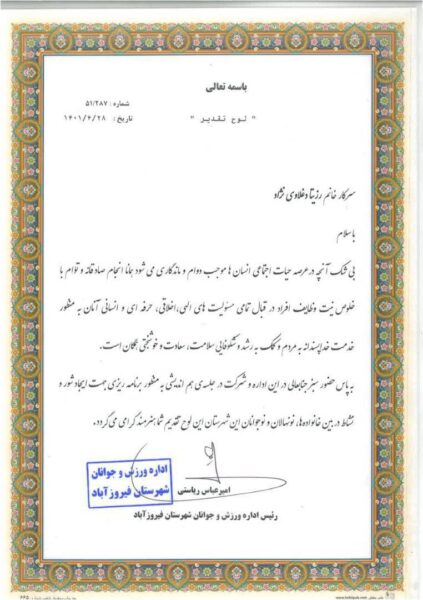 باسمه تعالی
شماره : ۵۱/۲۸۷
تاریخ : ۱۴۰۱/۴/۲۸
" لوح تقدیر "
سرکار خانم رزیتا دغلاوی نژاد
با سلام
بی شک آنچه در عرصه حیات اجتماعی انسان ها موجب دوام و ماندگاری می شود همانا انجام صادقانه و توأم با
خلوص نیت وظایف افراد در قبال تمامی مسئولیت های الهی، اخلاقی، حرفه ای و انسانی آنان به منظور
خدمت خداپسندانه به مردم و کمک به رشد و شکوفایی سلامت، سعادت و خوشبختی همگان است.
به پاس حضور سبز جنابعالی در این اداره و شرکت در جلسه ی هم اندیشی به منظور برنامه ریزی جهت ایجاد شور و
نشاط در بین خانواده ها، نونهالان و نوجوانان این شهرستان این لوح تقدیم شما هنرمند گرامی می گردد.
اداره ورزش و جوانان
شهرستان فیروزآباد
امیرعباس ریاستی
رئیس اداره ورزش و جوانان شهرستان فیروزآباد